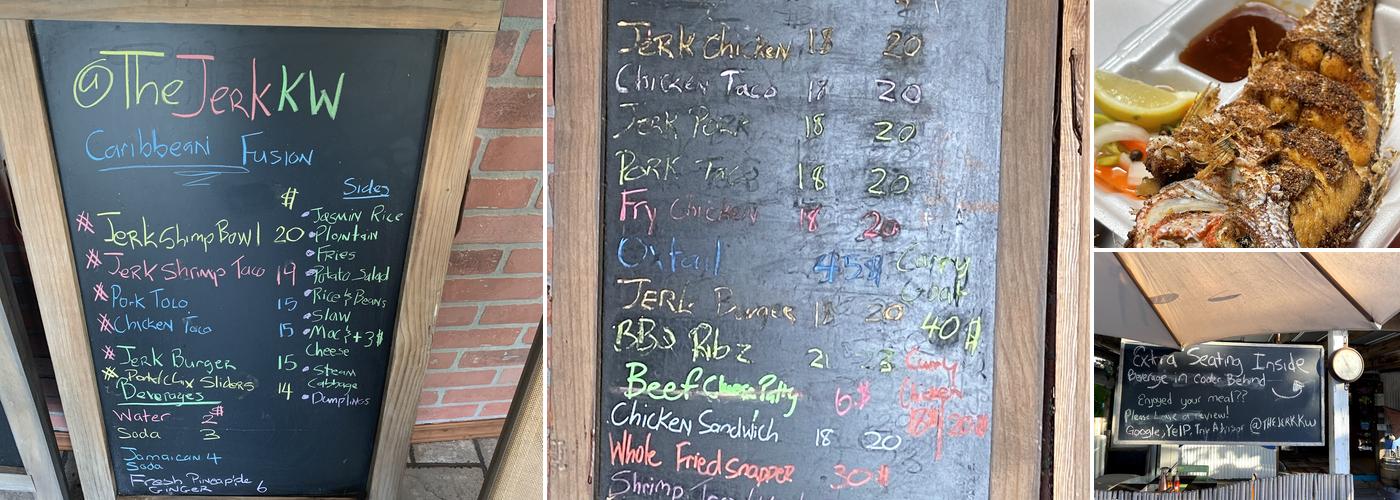 @TheJerkKW
Caribbean Fusion
$
Sides
# Jerk Shimp Bowl 20
# Jerk Shrimp Taco 19
# Pork Taco 15
# Chicken Taco 15
# Jerk Burger 15
# Pork/Chx Sliders 14
Beverages
Water 2$
Soda 3
Jamaican 4
Soda
Fresh Pineapple
GINGER 6
• Jasmin Rice
• Plantain
• Fries
• Potato Salad
• Rice & Beans
• Slaw
• Mac & +3$
Cheese
• Steam
Cabbage
• Dumplings
Jerk Chicken 18 20
Chicken Taco 18 20
Jerk Pork 18 20
Pork Taco 18 20
Fry Chicken 18 20
Oxtail 45$
Jerk Burger 18 20
BBQ Ribz 21 23
Beef Cheese Patty 6.$
Chicken Sandwich 18 20
Whole Fried Snapper 30$
Shrimp
Curry
Goat
40$
Curry
Chicken
18/20$
Extra Seating Inside
Beverage in Cooler Behind
Enjoyed your meal??
Please Leave a review!
Google, YELP, Trip Advisor @THEJERKKW